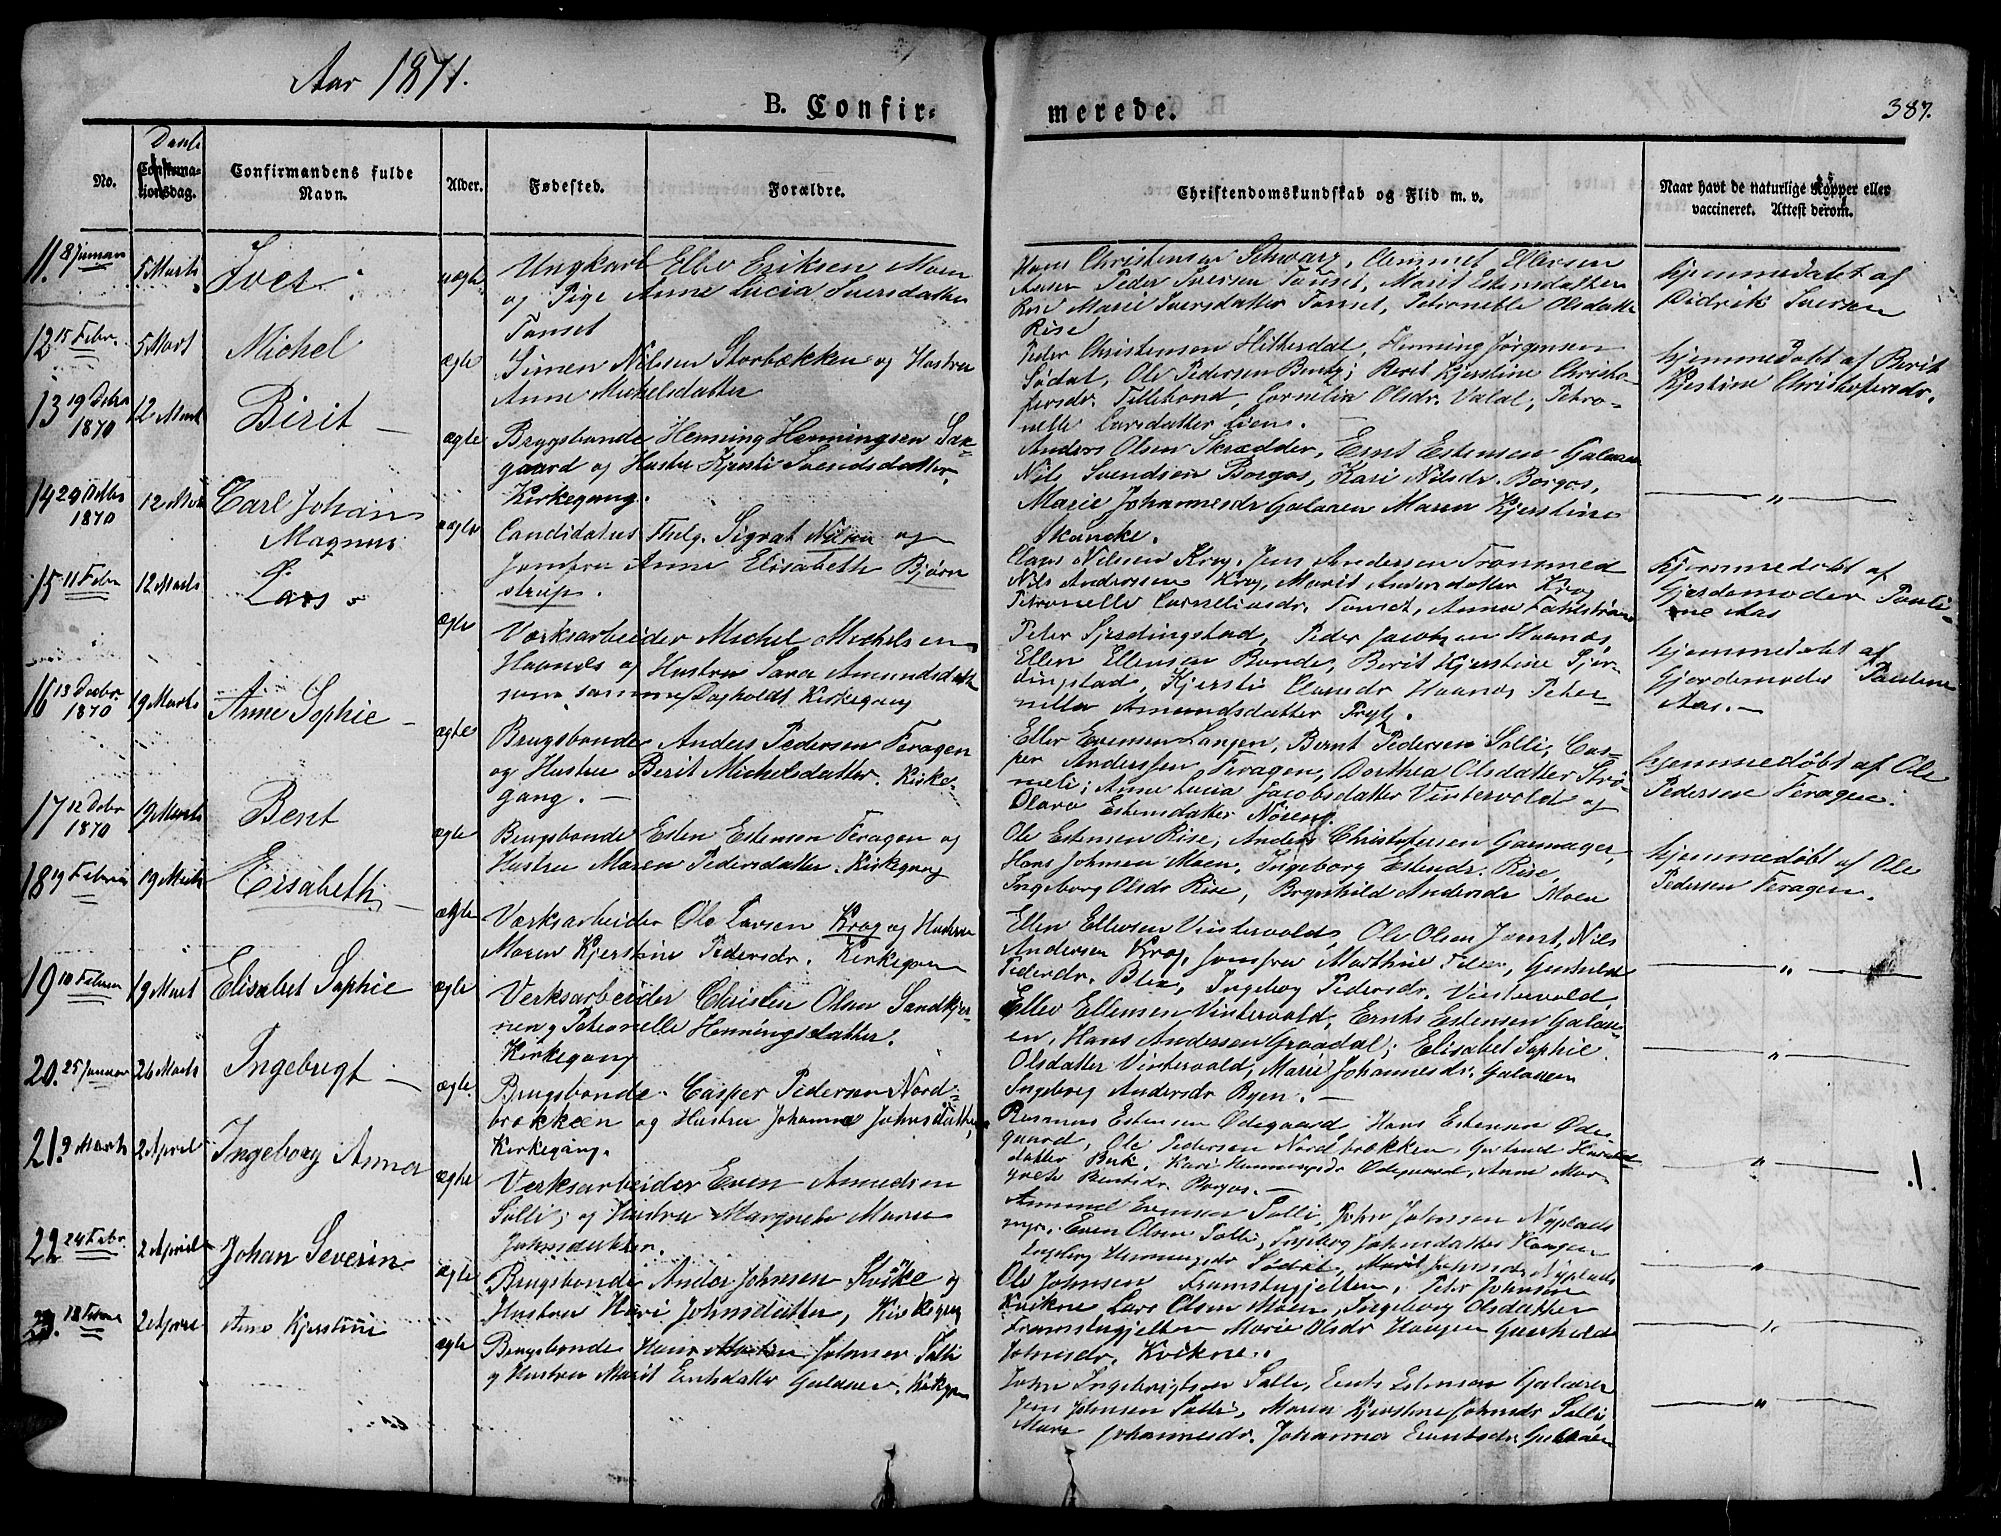 Aar 1871.
B. Confir-
merede.
387.
Daab
No.
Confirma-
tionsdag.
Confirmandens fulde
Navn.
Alder.
Fødested.
Forældre.
Christendomskundskab og Flid m. v.
Naar havt de naturlige Kopper eller
vaccineret. Attest derom.
11. 8 Januar
5 Marts
Iver
uægte
Ungkarl Ellev Eriksen Moen
og Pige Anne Lucia Iversdatter
Tamset
Hans Christensen Schwarz, Ammut Ellevsen
Aasen Peder Iversen Tamset, Marit Estensdatter
Rose Marie Iversdatter Tamset, Petronelle Olsdatter
Rise
hjemmedøbt af
Didrik Iversen
12 15 Febr.
5 Mart
Michel
ægte
Simen Nilsen Storbækken og Hustru
Anne Michelsdatter
Peder Christensen Hitterdal, Henning Jørgensen
Sødal, Ole Pedersen Bentz; Berit Kjerstine Christo-
fersdr. Lillebond, Cornelia Olsdr. Valal, Petro-
nelle Larsdatter Lien.
hjemmedøbt af Berit
Kjestine Christofersdr.
13 19 Debr
1870
12 Mart
Birit
ægte
Brugsbonde Henning Henningsen
gaard og Hustru Kjersti Svendsdatter,
Kirkegang.
Anders Olsen Skrædder, Ernt Estensen Galaaen
Nils Svendsen Borgos, Kari Nilsdr. Borgos,
Marie Johannesdr Galaaen Maren Kjerstine
Skancke.
14 29 Debr
1870
12 Mart
Carl Johan
Magnus
uægte
Candidatus Thelg. Sigvat Nilsen og
Jomfru Anne Elisabeth Bjørn
strup.
Claus Nilsen Krog, Jens Andersen Trønmed
Nils Anderssen Krog, Marit Andersdatter Krog
Petronelle Corneliusdr. Tamset, Anna
Hjemmedøbt af
Gjordemoder Pauli-
ne Aas
15 11 Febr
12 Marts
Lars
ægte
Værksarbeider Michel Michelsen
Haanæs og Hustru Sara Amundsdatter
som samme Dag holdt Kirkegang
Peter Sjerdingstad, Peder Jacobsen Haanæs,
Ellen Ellensen Bonde, Berit Kjerstine Sjer-
dingstad, Kjersti Olausdr Haanæs Petro-
nella Amundsdatter Prytz.
hjemmedøbt af
Gjordemoder Pauline
Aas.
16 13 Decbr
1870
19 Marts
Anne Sophie
ægte
Brugsbonde Anders Pedersen Feragen
og Hustru Berit Michelsdatter. Kirke-
gang.
Ellev Evensen Langen, Bernt Pedersen Solli, Cas-
per Anderssen Feragen, Dorthea Olsdatter Strø-
meli; Anne Lucia Jacobsdatter Vintervold og
Olava Estensdatter Nøseng.
hjemmedøbt af Ole
Pedersen Feragen.
17 12 Debr
1870
19 Marts
Bent
ægte
Brugsbonde Esten Estensen Feragen og
Hustru Maren Pedersdatter. Kirkegang
Ole Estensen Rise, Anders Christofersen Garmager,
Hans Johnsen Moen, Ingeborg Estensdr. Rise,
Ingeborg Olsdr Rise, Brynhild Andersdr Moen
hjemmedøbt af Ole
Pedersen Feragen.
18 9 Februar
19 Marts
Elisabeth
ægte
Værksarbeider Ole Larsen Krog og Hustru
Maren Kjerstine Pedersdr. Kirkegang
Ellen Ellevsen Vintervold, Ole Olsen Jamt, Nils
Andersen Krog, Jomfru Marthine, Gunhild
Pedersdr. Blix, Ingeborg Pedersdr. Vintervold,
19 10 Februar
19 Mart
Elisabet Sophie
ægte
Værksarbeider Christen Olsen Sandkjer-
nen og Petronelle Henningsdatter.
Kirkegang
Ellev Ellensen Vintervold, Ernts Estensen Galaa-
en, Hans Andersen Graadal; Elisabet Sophie
Olsdatter Vintervold, Marie Johannesdr. Galaaen
Ingeborg Andersdr Ryen.
20. 25 Januar
26 Marts
Ingebrigt
ægte.
Brugsbonde Casper Pedersen Nord-
brækken og Hustru Johanna Johnsdatter,
Kirkegang.
Rasmus Estensen Ødegaard, Hans Estensen Øde-
gaard, Ole Pedersen Nordbrækken, Gertrud Harald-
datter Bek, Kari Henningsdr Ødegaard, Anne Mar-
grete Bentsdr. Borgos.
21. 9 Marts
2 April
Ingeborg Anna
ægte
Værksarbeider Even Amundsen
Solli, og Hustru Margrete Marie
Johnsdatter.
Ammund Evensen Solli, John Johnsen Nyplads
myr. Even Olsen Solli, Ingeborg Johnsdatter Haugen
Ingeborg Henningsdr Sødal, Marit Johnsdr Nyplads
22 24 Febr.
2 April
Johan Severin
ægte
Brugsbonde Andor Johnsen Kvikne og
Hustru Kari Johnsdatter, Kirkegang
Ole Johnsen Framstugjelten, Peter Johnsen
Kvikne Lars Olsen Moen, Ingeborg Olsdatter
Framstugjelten Marie Olsdr Haugen Gunhild
Johnsdr. Kvikne.
23. 18 Febr
2 April
Anne Kjerstine
ægte
Brugsbonde Hans Martin Johnsen Solli
og Hustru Marit Erntsdatter Galaaen. Kirkegang
John Ingebrigtsen Solli, Ernts Estensen Galaaen
Jens Johnsen Solli, Maren Kjerstine Johnsdr Solli
Mari Johannesdr. Johanna Erntsdr. Galaaen